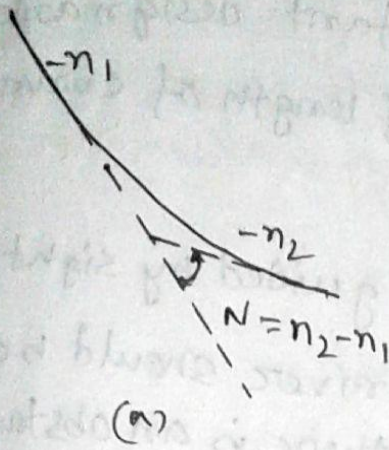 -n₁
-n₂
N = n₂ - n₁
(a)